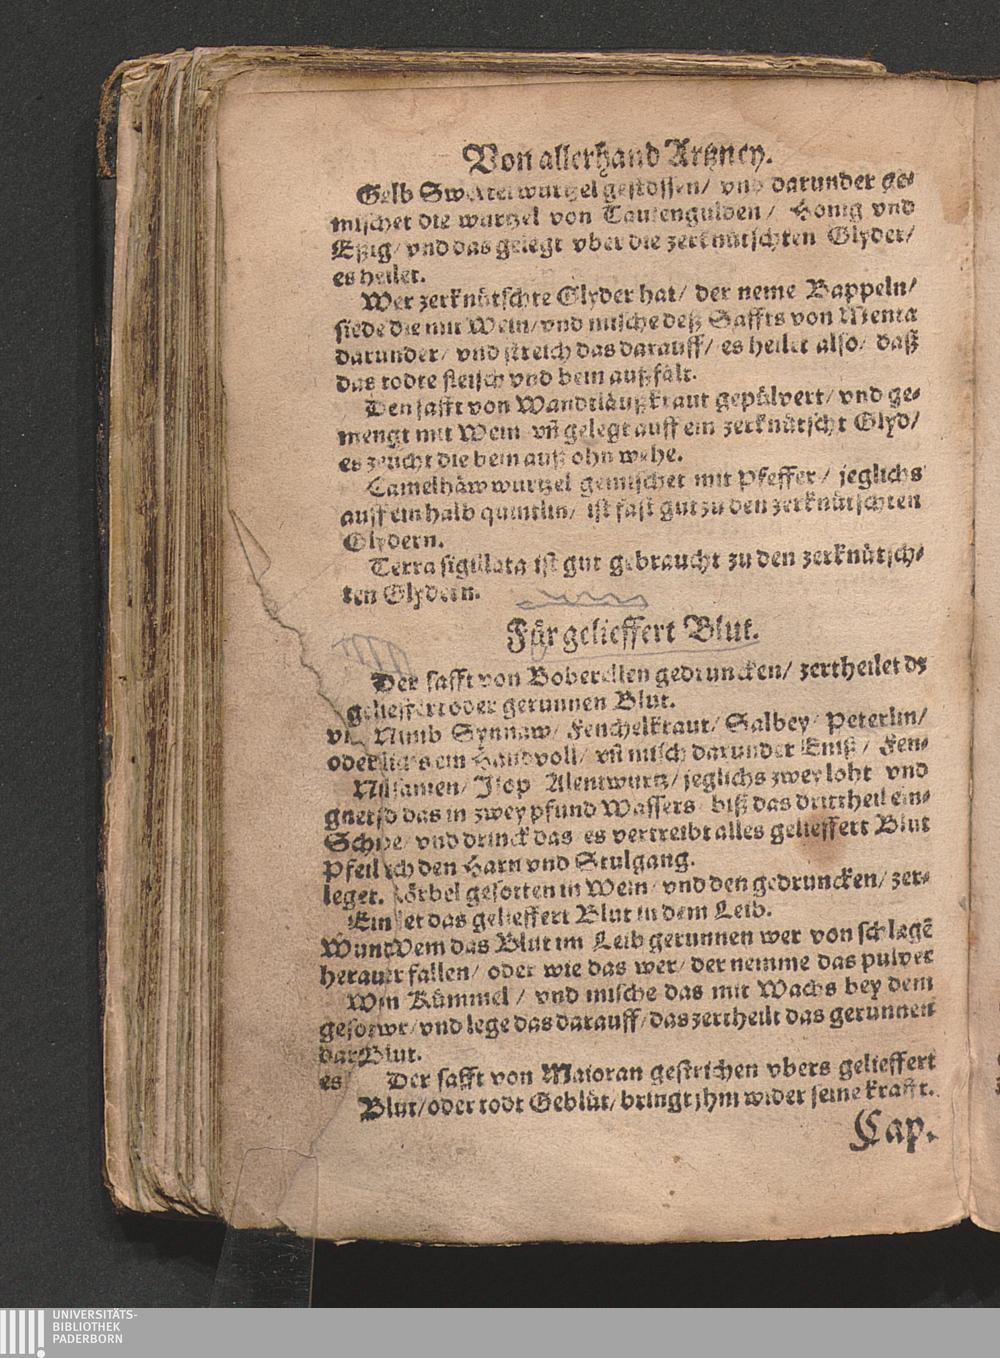 Von allerhand Artzney.
Gelb Swertelwurtzel gestossen/ vnd darunder ge-
mischet die wurtzel von Tausengulden/ Honig vnd
Eßig/ vnd das gelegt vber die zerknütschten Glyder/
es heilet.
Wer zerknütschte Glyder hat/ der neme Bappeln/
siede die mit Wein/ vnd mische deß Saffts von Menta
darunder/ vnd streich das darauff/ es heilet also/ daß
das todte fleisch vnd bein außfält.
Den safft von Wandtläußkraut gepülvert/ vnd ge-
mengt mit Wein vñ gelegt auff ein zerknütscht Glyd/
es zeucht die bein auß ohn wehe.
Camelhäw wurtzel gemischet mit Pfeffer/ jeglichs
auff ein halb quintlin/ ist fast gut zu den zerknütschten
Glydern.
Terra sigillata ist gut gebraucht zu den zerknütsch-
ten Glydern.
Für gelieffert Blut.
Der safft von Boberellen gedruncken/ zertheilet dz
gelieffert oder gerunnen Blut.
Nimb Synnaw/ Fenchelkraut/ Salbey/ Peterlin/
ein Handvoll/ vñ misch darunder Eniß/ Fen-
samen/ Jsop Alentwurtz/ jeglichs zwey loht vnd
das in zwey pfund Wassers biß das drittheil ein-
vnd drinck das es vertreibt alles gelieffert Blut
den Harn vnd Stulgang.
leget. Körbel gesotten in Wein/ vnd den gedruncken/ zer-
et das gelieffert Blut in dem Leib.
Wem das Blut im Leib gerunnen wer von schlagẽ
fallen/ oder wie das wer/ der nemme das pulver
Kümmel/ vnd mische das mit Wachs bey dem
vnd lege das darauff/ das zertheilt das gerunnen
Blut.
es Der safft von Maioran gestrichen vbers gelieffert
Blut/ oder todt Geblüt/ bringt jhm wider seine krafft.
Cap.
UNIVERSITÄTS-
BIBLIOTHEK
PADERBORN